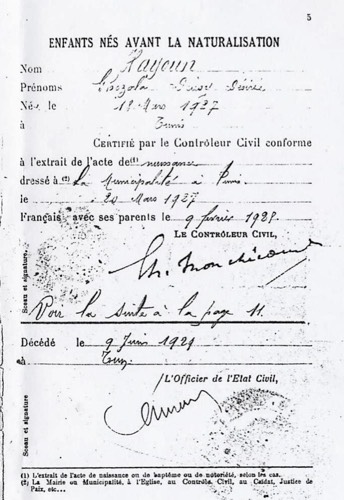 5
ENFANTS NÉS AVANT LA NATURALISATION
Nom Hayoun
Prénoms Désirée
Né le 18 Mars 1927
à Tunis
CERTIFIÉ par le Contrôleur Civil conforme
à l'extrait de l'acte de (1) naissance
dressé à (2) La Municipalité à Tunis
le 20 Mars 1927
Français avec ses parents le 9 février 1928
LE CONTRÔLEUR CIVIL,
Sceau et signature
Ch. Monchicourt
Voir la suite à la page 11.
Décédé le 9 Juin 1929
à Tunis
L'Officier de l'Etat Civil,
Sceau et signature
(1) L'extrait de l'acte de naissance ou de baptême ou de notoriété, selon les cas.
(2) La Mairie ou Municipalité, à l'Eglise, au Contrôle Civil, au Caïdat, Justice de
Paix, etc...